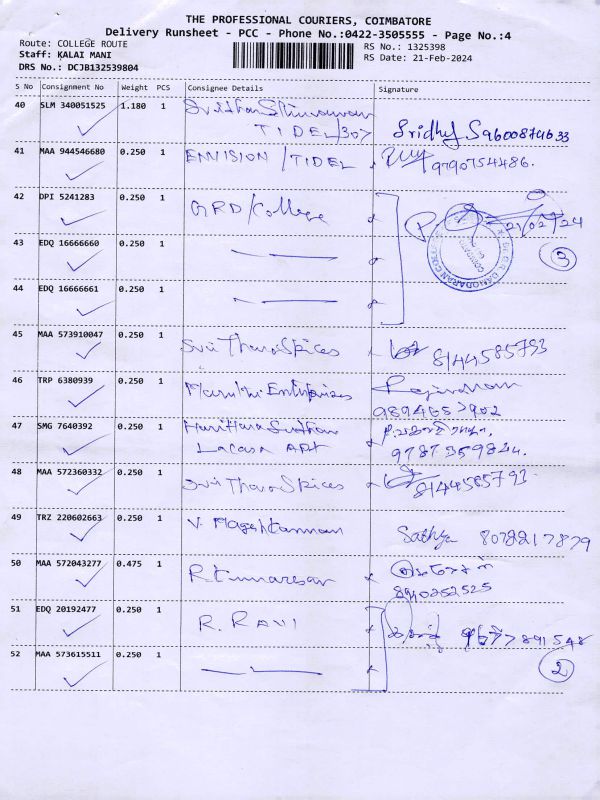 THE PROFESSIONAL COURIERS, COIMBATORE
Delivery Runsheet - PCC - Phone No.:0422-3505555 - Page No.:4
Route: COLLEGE ROUTE
RS No.: 1325398
Staff: KALAI MANI
RS Date: 21-Feb-2024
DRS No.: DCJB132539804
S No Consignment No Weight PCS Consignee Details Signature
40 SLM 340051525 1.180 1
TIDEL/307 Sridhar S 9600874633
41 MAA 944546680 0.250 1 ENVISION / TIDEL 9790754486.
42 DPI 5241283 0.250 1 GRD/College 21/02/24
43 EDQ 16666660 0.250 1 3
44 EDQ 16666661 0.250 1
45 MAA 573910047 0.250 1 Sri Thara Spices 8144585793
46 TRP 6380939 0.250 1 Maruthi Enterprises
9894657902
47 SMG 7640392 0.250 1 Harihara Sudhan
Lacasa APt
48 MAA 572360332 0.250 1 Sri Thara Spices 8144585793
49 TRZ 220602663 0.250 1 V. Mageshkannan Sathya 8078217879
50 MAA 572043277 0.475 1 R Kumaresan
8940252525
51 EDQ 20192477 0.250 1 R. RAVI
52 MAA 573615511 0.250 1 2